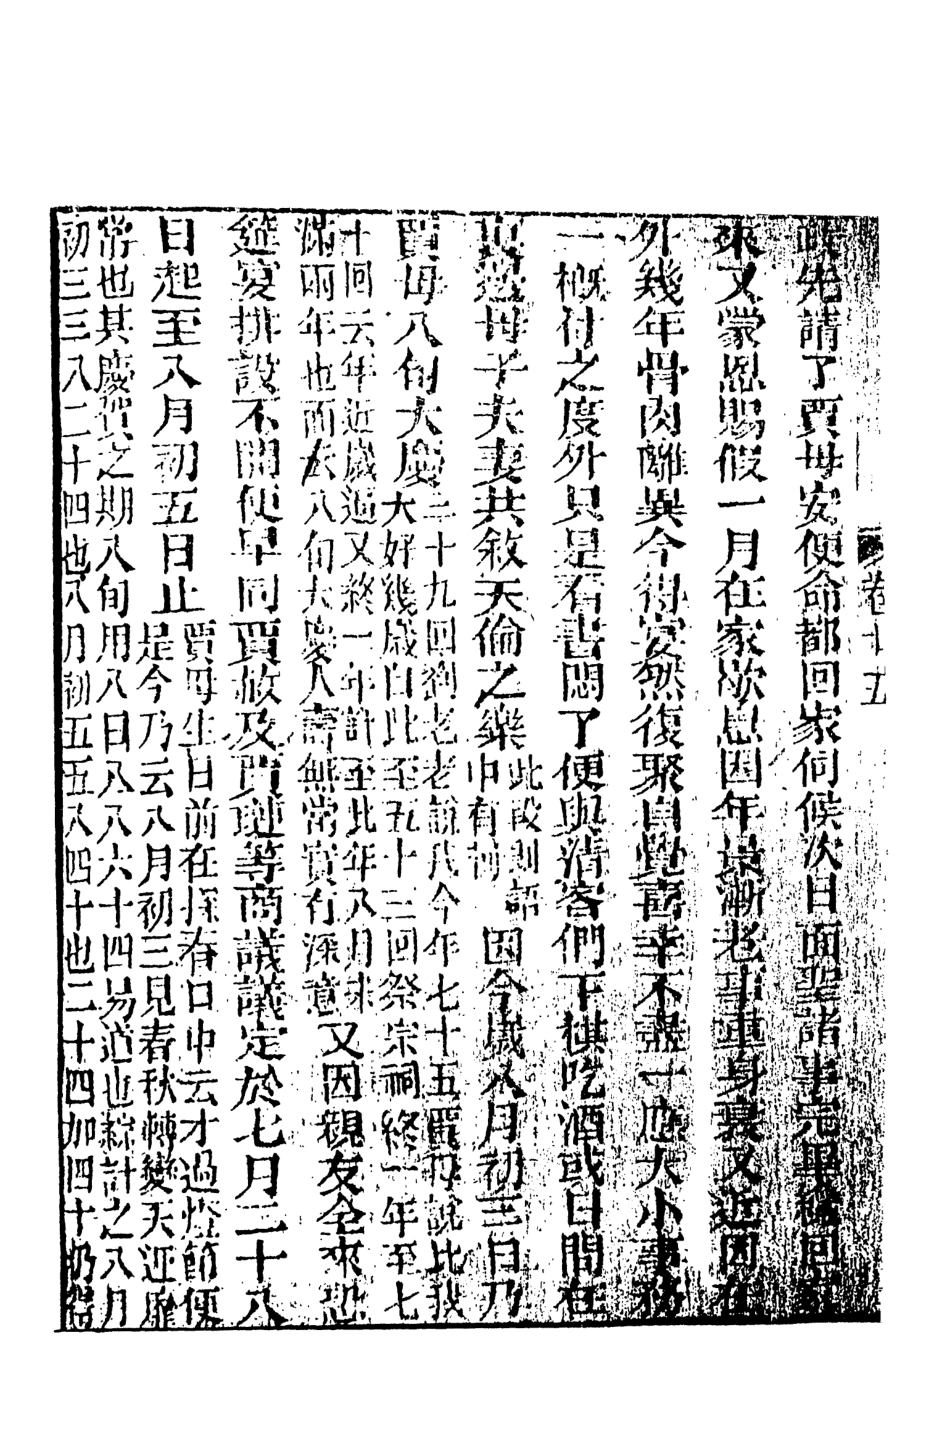 卷十五
政先請了賈母安便命都回家伺候次日面聖諸事完畢纔回家
來又蒙恩賜假一月在家歇息因年景漸老事重身衰又近因在
外幾年骨肉離異今得宴然復聚自覺喜幸不盡一應大小事務
一概付之度外只是看書悶了便與清客們下棋吃酒或日間在
裏邊母子夫妻共敘天倫之樂
此段則語
中有
因今歲八月初三日乃
賈母八旬大慶
三十九回劉老老說代今年七十五賈母說比我
大好幾歲自此至五十三回祭宗祠終一年至七
十回云年近歲逼又終一年計至此年八月
滿兩年也而云八旬大慶人壽無常實有深意
又因親友全來恐
筵宴排設不開便早同賈赦及賈璉等商議議定於七月二十八
日起至八月初五日止
賈母生日前在探春口中云才過燈節便
是今乃云八月初三見春秋轉變天道靡
常也其慶賀之期八旬用八日八八六十四易道也綜計之八月
初三三八二十四也八月初五五八四十也二十四加四十仍得